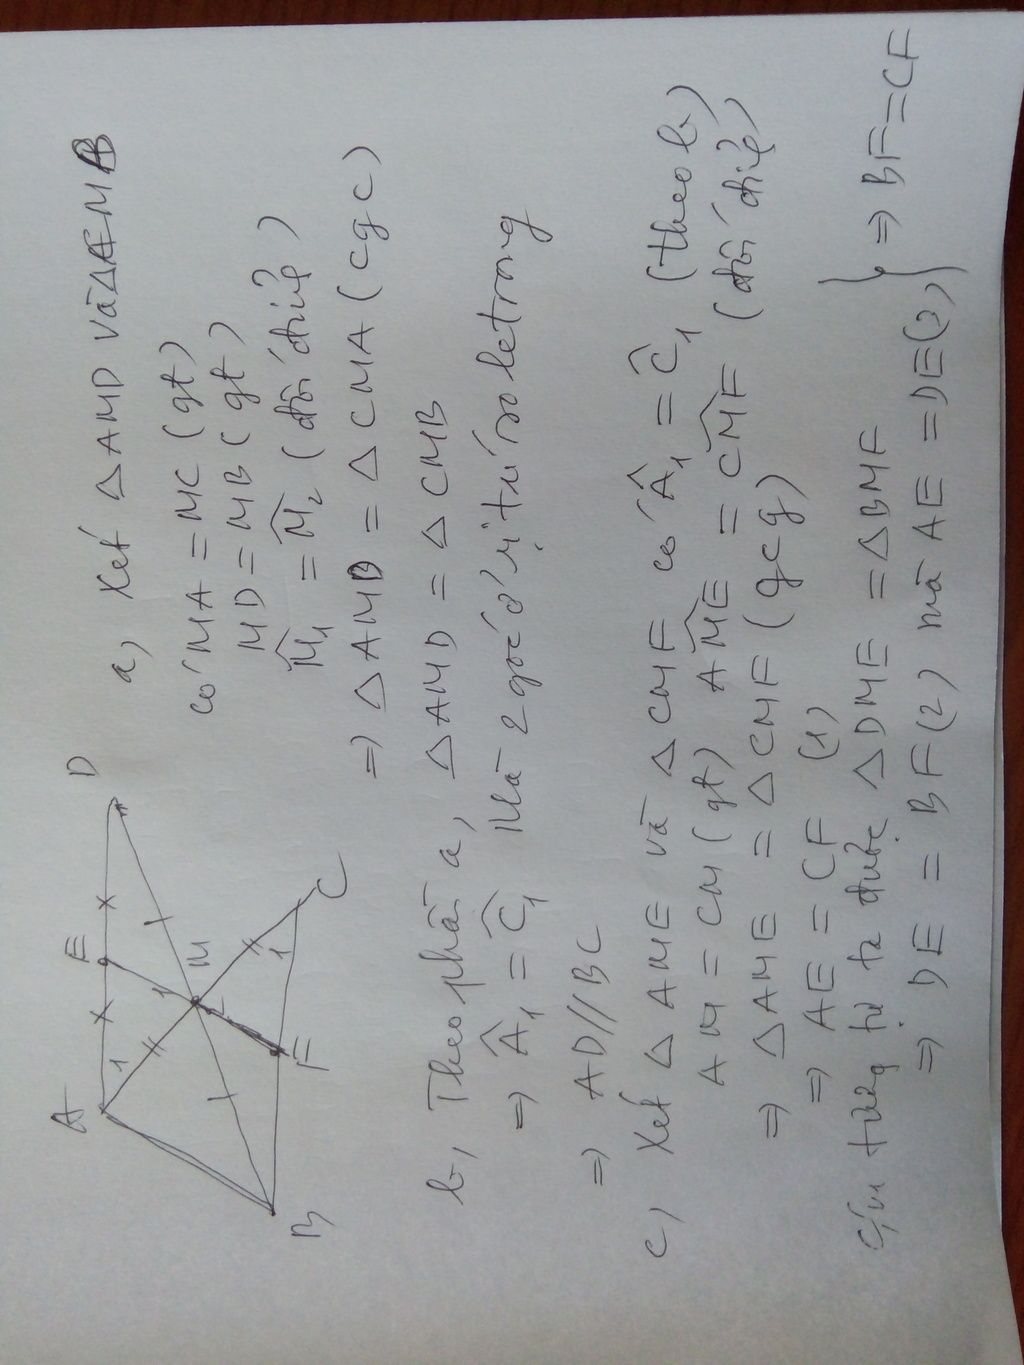 A
E
D
1
1
M
2
1
B
F
C
a, Xét △AMD và △CMB
có MA = MC (gt)
MD = MB (gt)
M̂₁ = M̂₂ (đối đỉnh)
⇒ △AMB = △CMA (cgc)
b, Theo phần a, △AMD = △CMB
⇒ Â₁ = Ĉ₁ Mà 2 góc ở vị trí so le trong
⇒ AD//BC
c, Xét △AME và △CMF có Â₁ = Ĉ₁ (theo b)
AM = CM (gt) AM̂E = CM̂F (đối đỉnh)
⇒ △AME = △CMF (gcg)
⇒ AE = CF (1)
C/m tương tự ta được △DME = △BMF
⇒ DE = BF (2) mà AE = DE (3) } ⇒ BF = CF